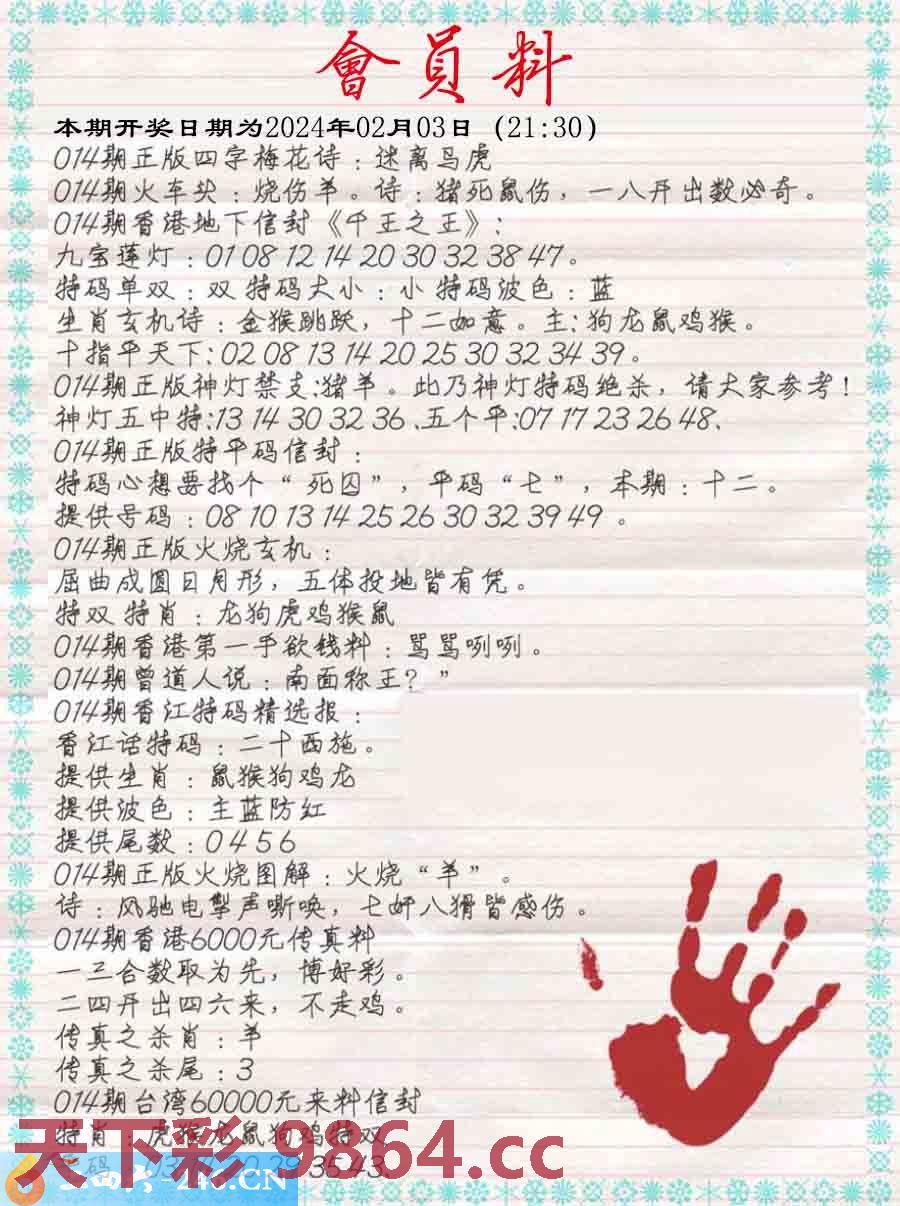 會員料
本期开奖日期为2024年02月03日（21:30）
014期正版四字梅花诗：迷离马虎
014期火车头：烧伤羊。诗：猪死鼠伤，一八开出数必奇。
014期香港地下信封《千王之王》：
九宝莲灯：01 08 12 14 20 30 32 38 47。
特码单双：双 特码大小：小 特码波色：蓝
生肖玄机诗：金猴跳跃，十二如意。主：狗龙鼠鸡猴。
十指平天下：02 08 13 14 20 25 30 32 34 39。
014期正版神灯禁支：猪羊。此乃神灯特码绝杀，请大家参考！
神灯五中特：13 14 30 32 36 .五个平：07 17 23 26 48、
014期正版特平码信封：
特码心想要找个“死囚”，平码“七”，本期：十二。
提供号码：08 10 13 14 25 26 30 32 39 49 。
014期正版火烧玄机：
屈曲成圆日月形，五体投地皆有凭。
特双 特肖：龙狗虎鸡猴鼠
014期香港第一手欲钱料：骂骂咧咧。
014期曾道人说：南面称王？”
014期香江特码精选报：
香江话特码：二十西施。
提供生肖：鼠猴狗鸡龙
提供波色：主蓝防红
提供尾数：0 4 5 6
014期正版火烧图解：火烧“羊”。
诗：风驰电掣声嘶唤，七奸八猾皆感伤。
014期香港6000元传真料
一三合数取为先，博好彩。
二四开出四六来，不走鸡。
传真之杀肖：羊
传真之杀尾：3
014期台湾60000元来料信封
特肖：虎猴龙鼠狗鸡特双
35 43.
天下彩 9864.cc
246.CN